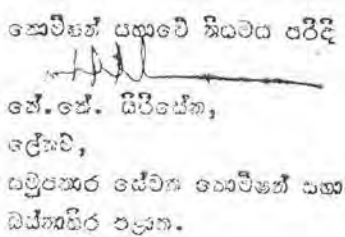 කොමිෂන් සභාවේ නියමය පරිදි
කේ.කේ. සිරිසේන,
ලේකම්,
සමුපකාර සේවක කොමිෂන් සභාව
බස්නාහිර පළාත.